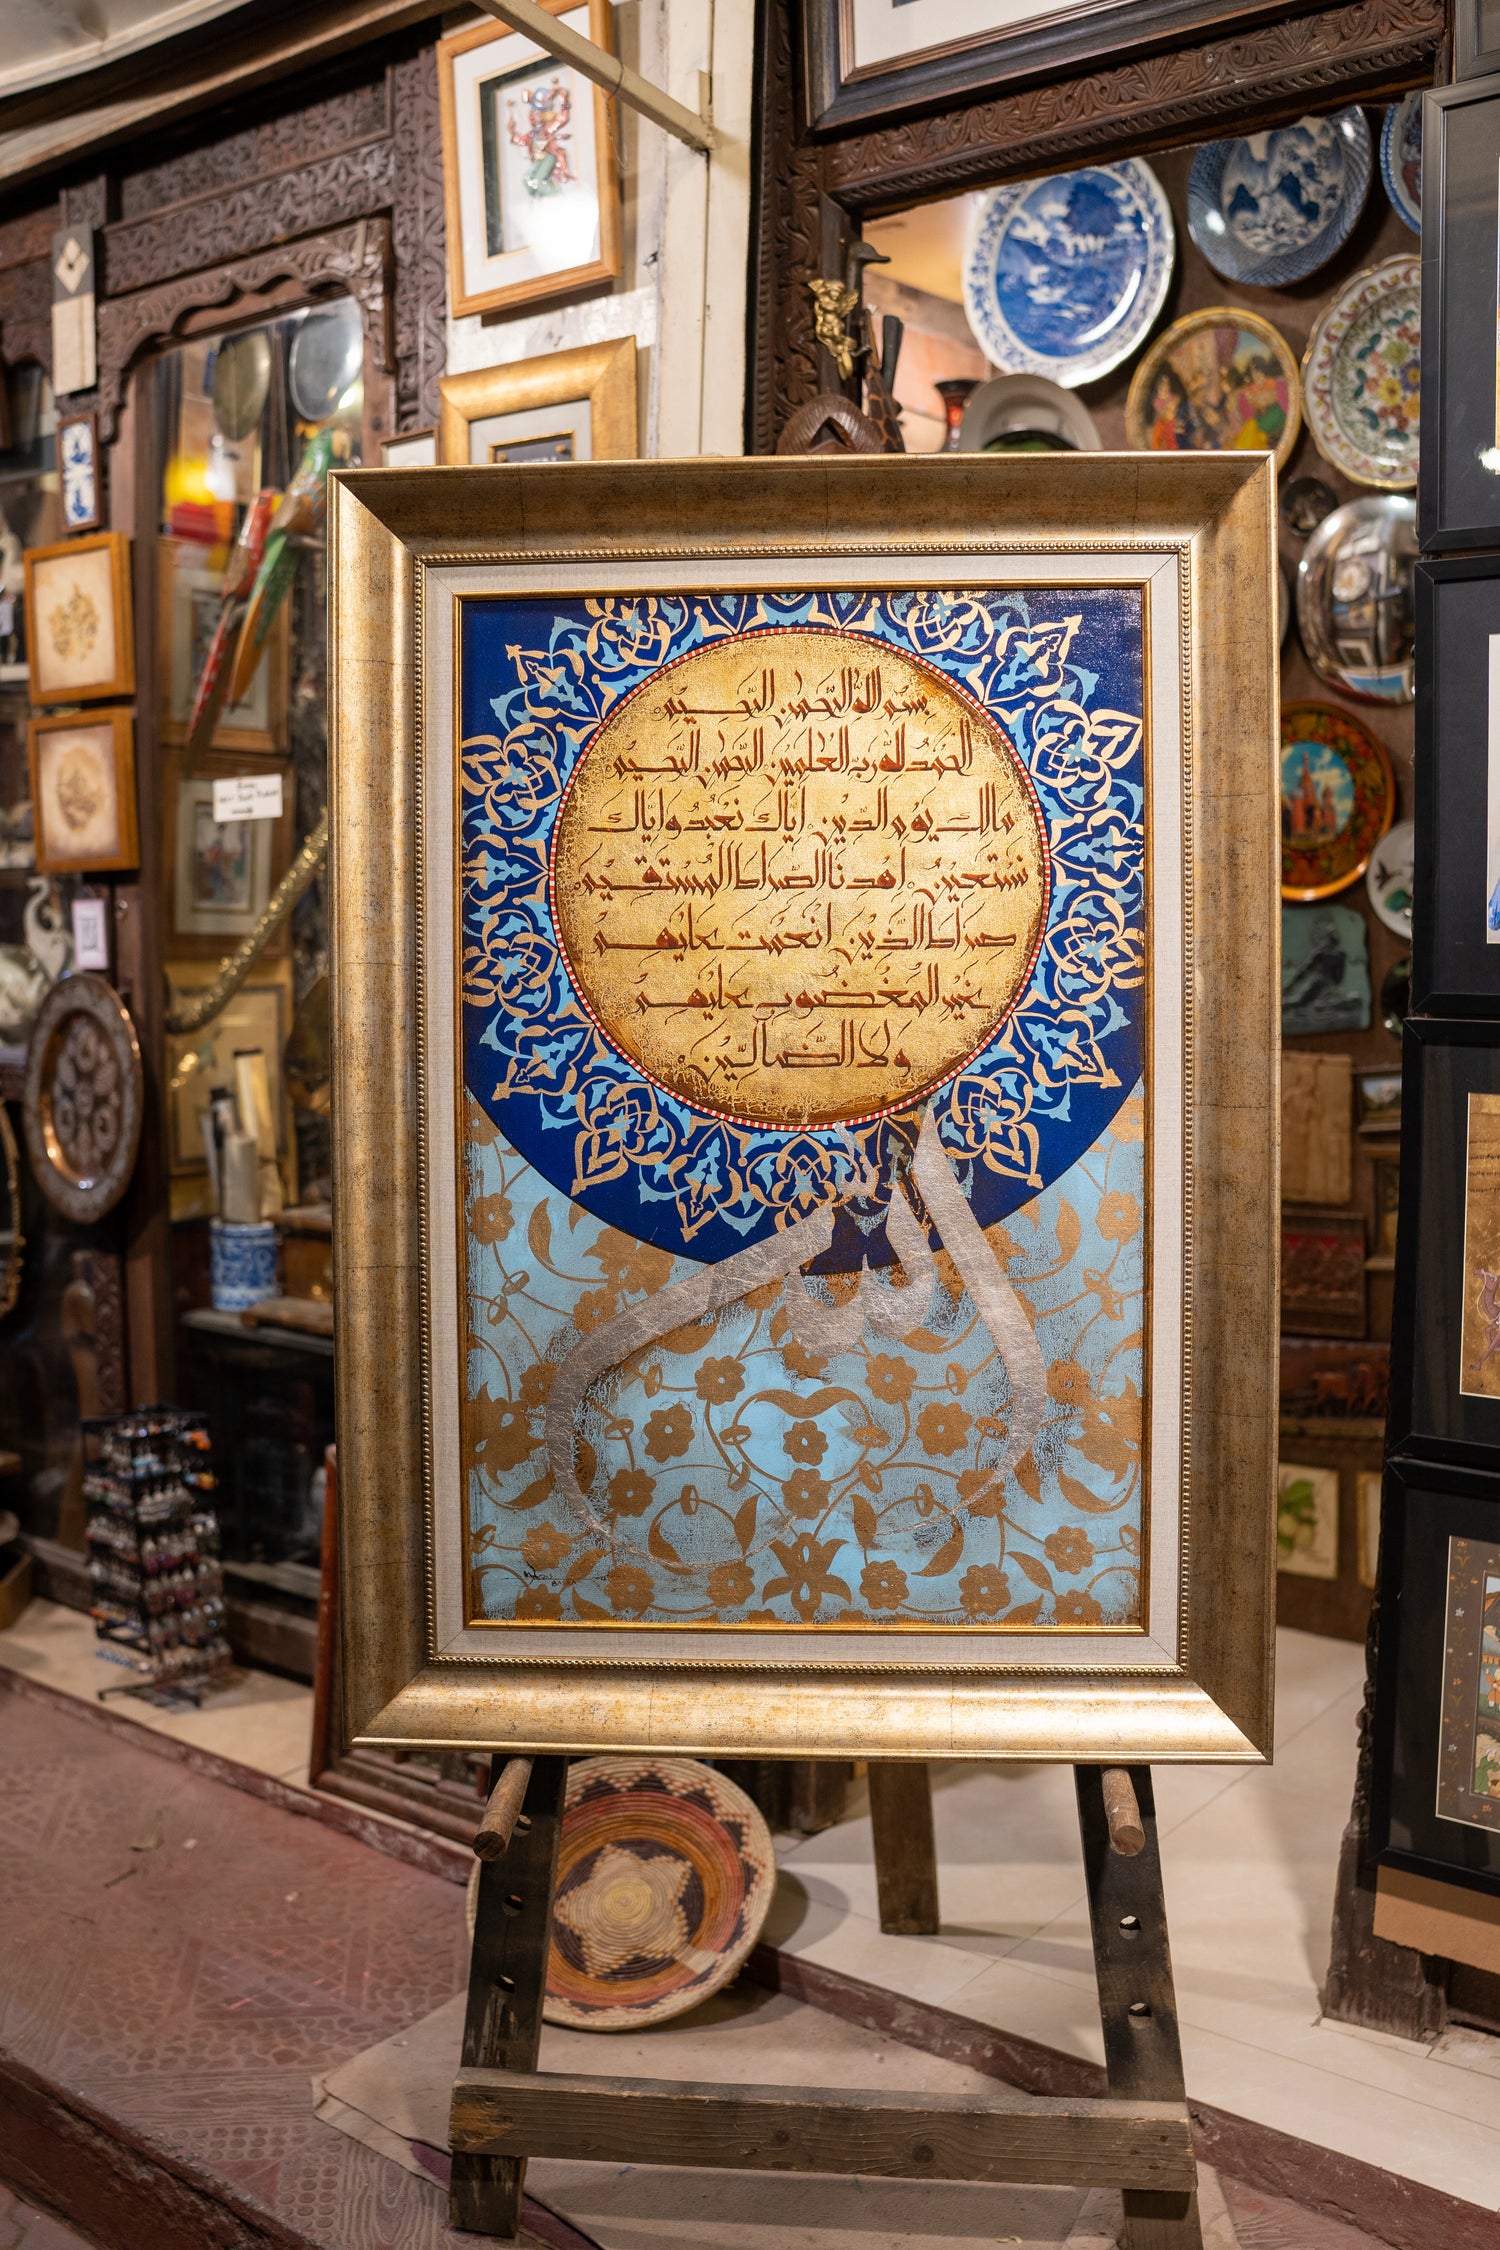 بِسْمِ اللهِ الرَّحْمٰنِ الرَّحِيْمِ
الحمدُ للهِ رب العٰلمين الرحمن الرحيم
مالك يَوْم الدِّيْنِ اياك نَعْبُدُ واياك
نَسْتَعِيْنُ اهدنا الصِّراط المُسْتَقِيْم
صراط الَّذِيْنَ انْعَمْت عليهم
غَيْرِ المَغْضُوبِ عليْهِمْ
وَلا الضَّالِّيْنَ
الله